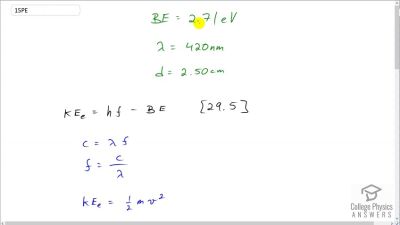 15PE
BE = 2.71 eV
λ = 420nm
d = 2.50 cm
KEe = hf - BE [29.5]
c = λ f
f = c/λ
KEe = 1/2 m v²
College Physics
ANSWERS